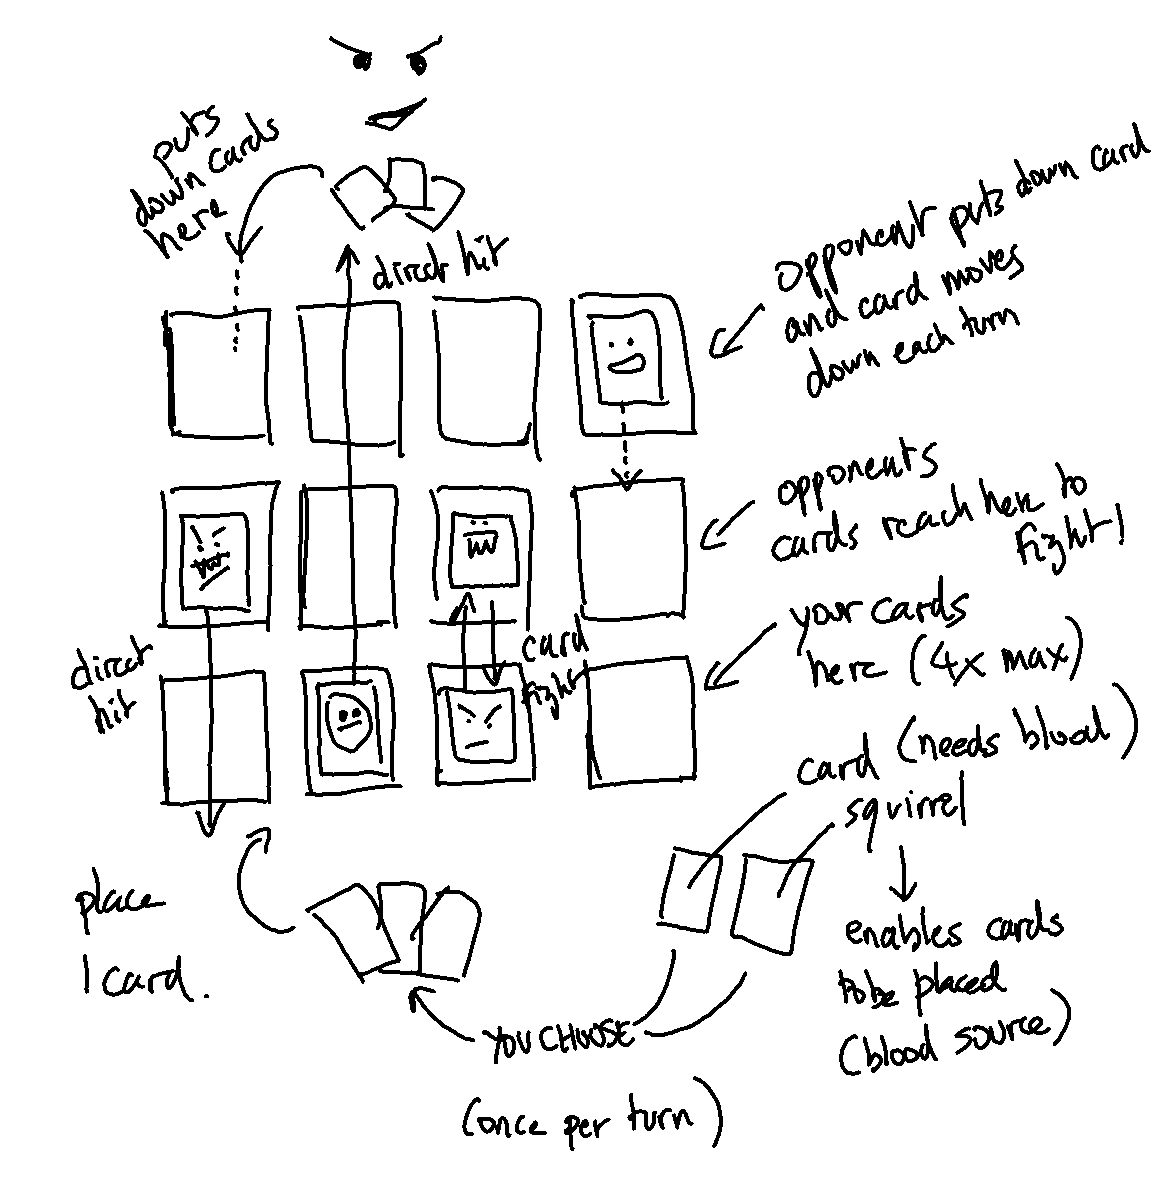 puts
down cards
here
direct hit
opponent puts down card
and card moves
down each turn
opponents
cards reach here to
fight!
direct
hit
card
fight
your cards
here (4x max)
card (needs blood)
squirrel
place
1 card.
enables cards
to be placed
(blood source)
YOU CHOOSE
(once per turn)